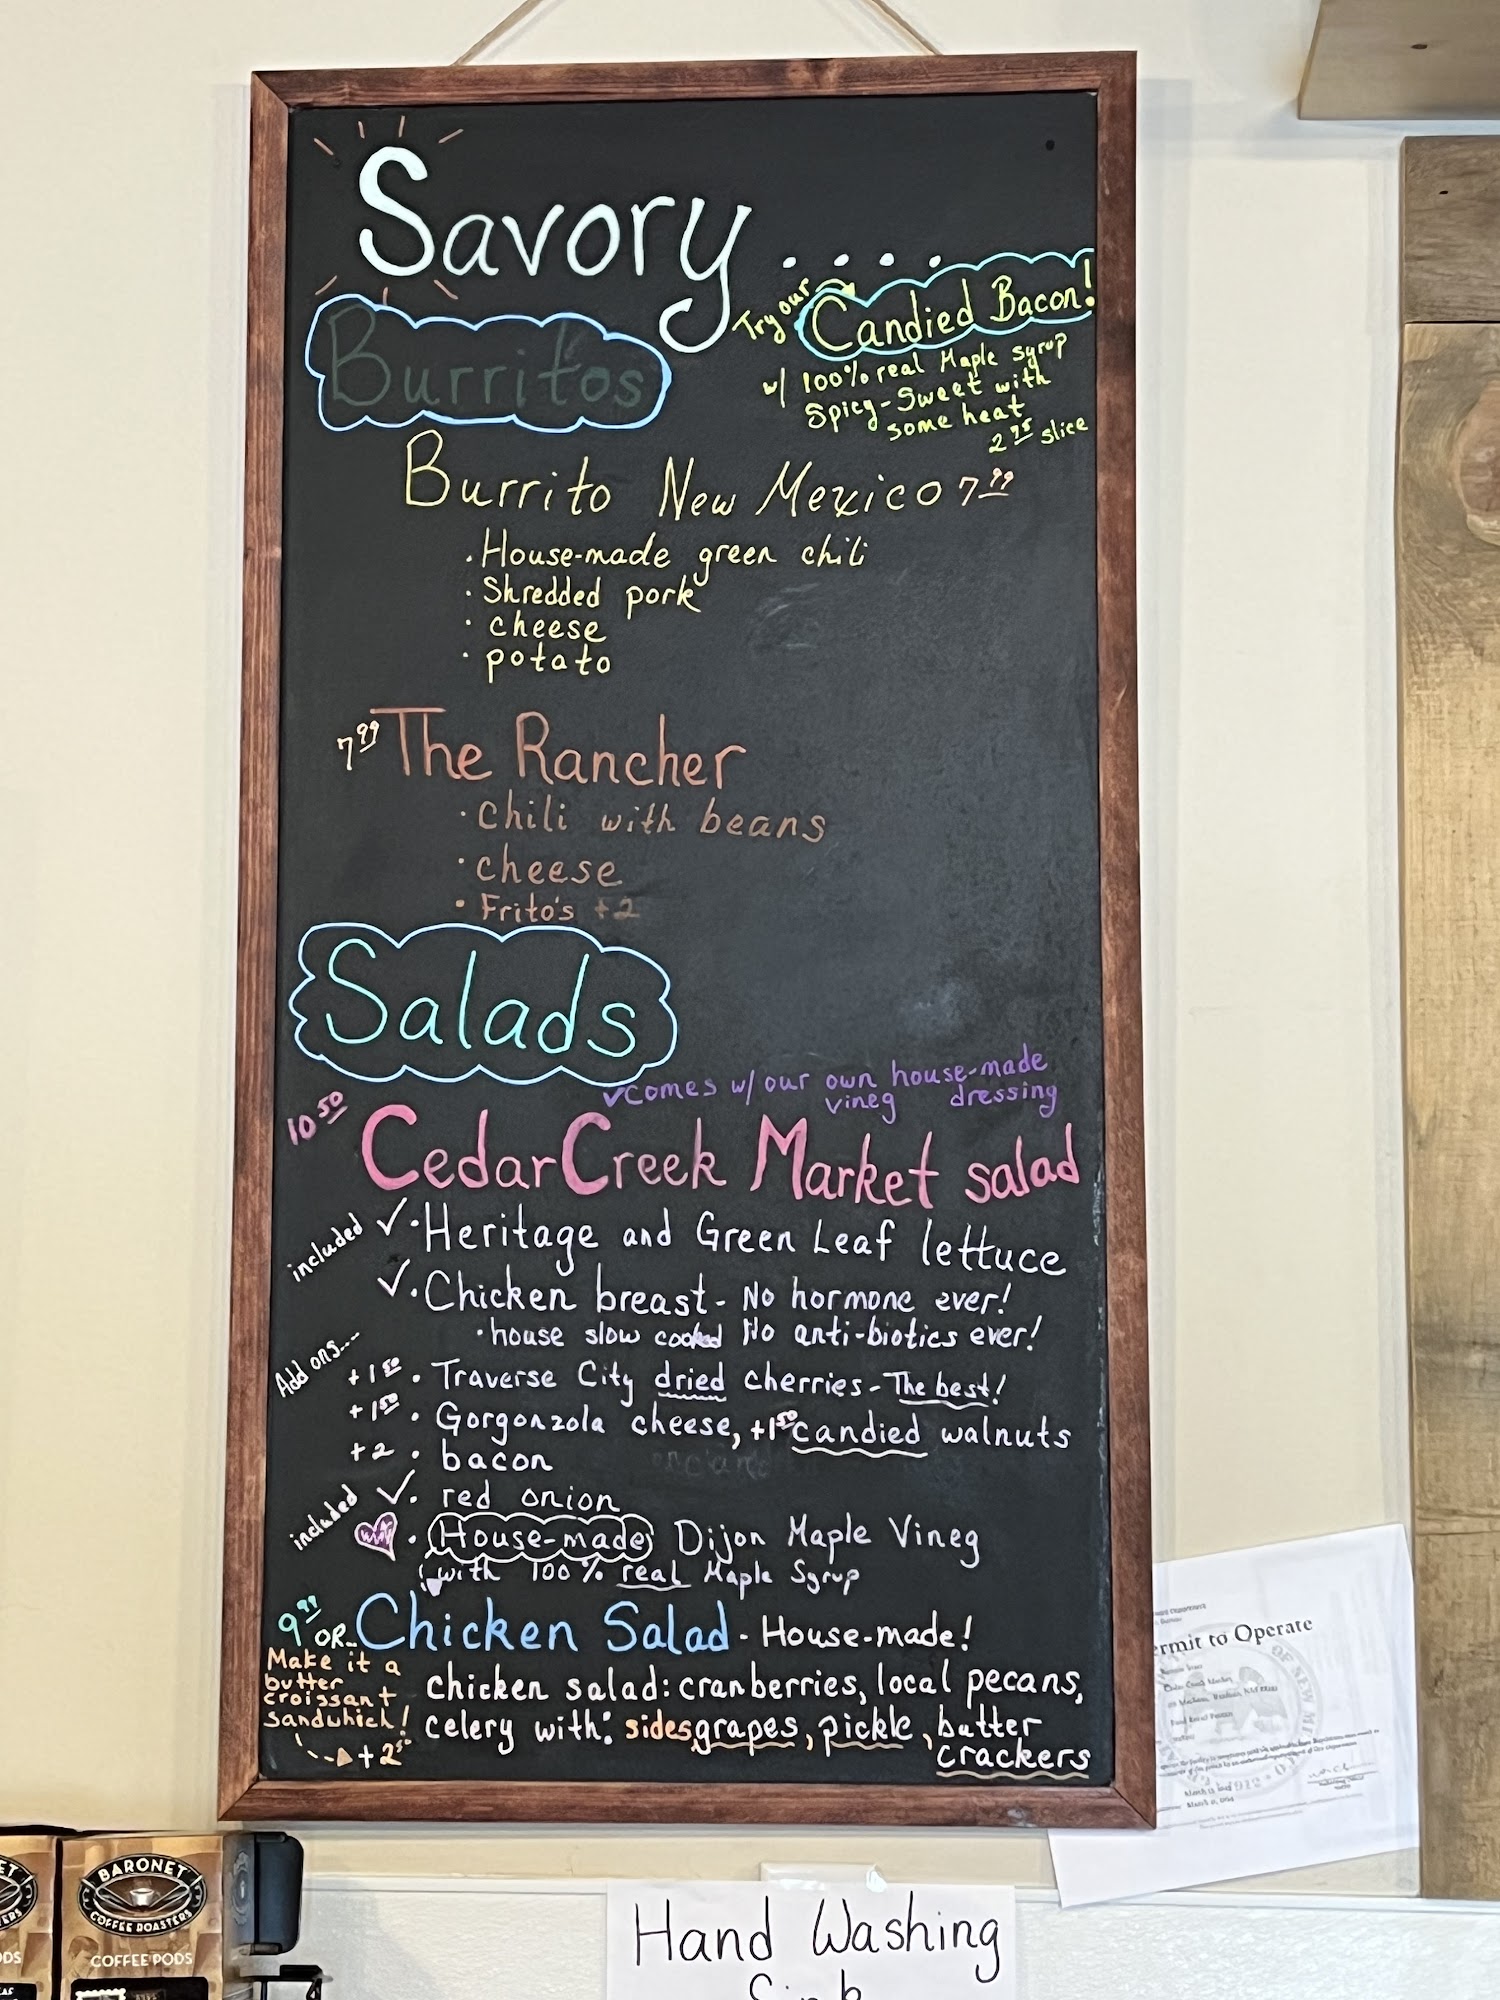 Savory....
Try our Candied Bacon!
w/ 100% real Maple syrup
Spicy-Sweet with
some heat
2.95 slice
Burritos
Burrito New Mexico 7.99
. House-made green chili
. Shredded pork
. cheese
. potato
7.99 The Rancher
. chili with beans
. cheese
. Frito's +2
Salads
✓comes w/ our own house-made
vineg dressing
10.50 Cedar Creek Market salad
included ✓. Heritage and Green Leaf lettuce
✓. Chicken breast - No hormone ever!
. house slow cooked No anti-biotics ever!
Add ons...
+1.50 . Traverse City dried cherries - The best!
+1.50 . Gorgonzola cheese, +1.50 candied walnuts
+2 . bacon
included ✓. red onion
. House-made Dijon Maple Vineg
with 100% real Maple Syrup
9.99 OR.. Chicken Salad - House-made!
Make it a
butter
croissant
sandwhich!
+2.50
chicken salad: cranberries, local pecans,
celery with: sides, grapes, pickle, butter
crackers
ermit to Operate
BARONET
COFFEE ROASTERS
COFFEE PODS
Hand Washing